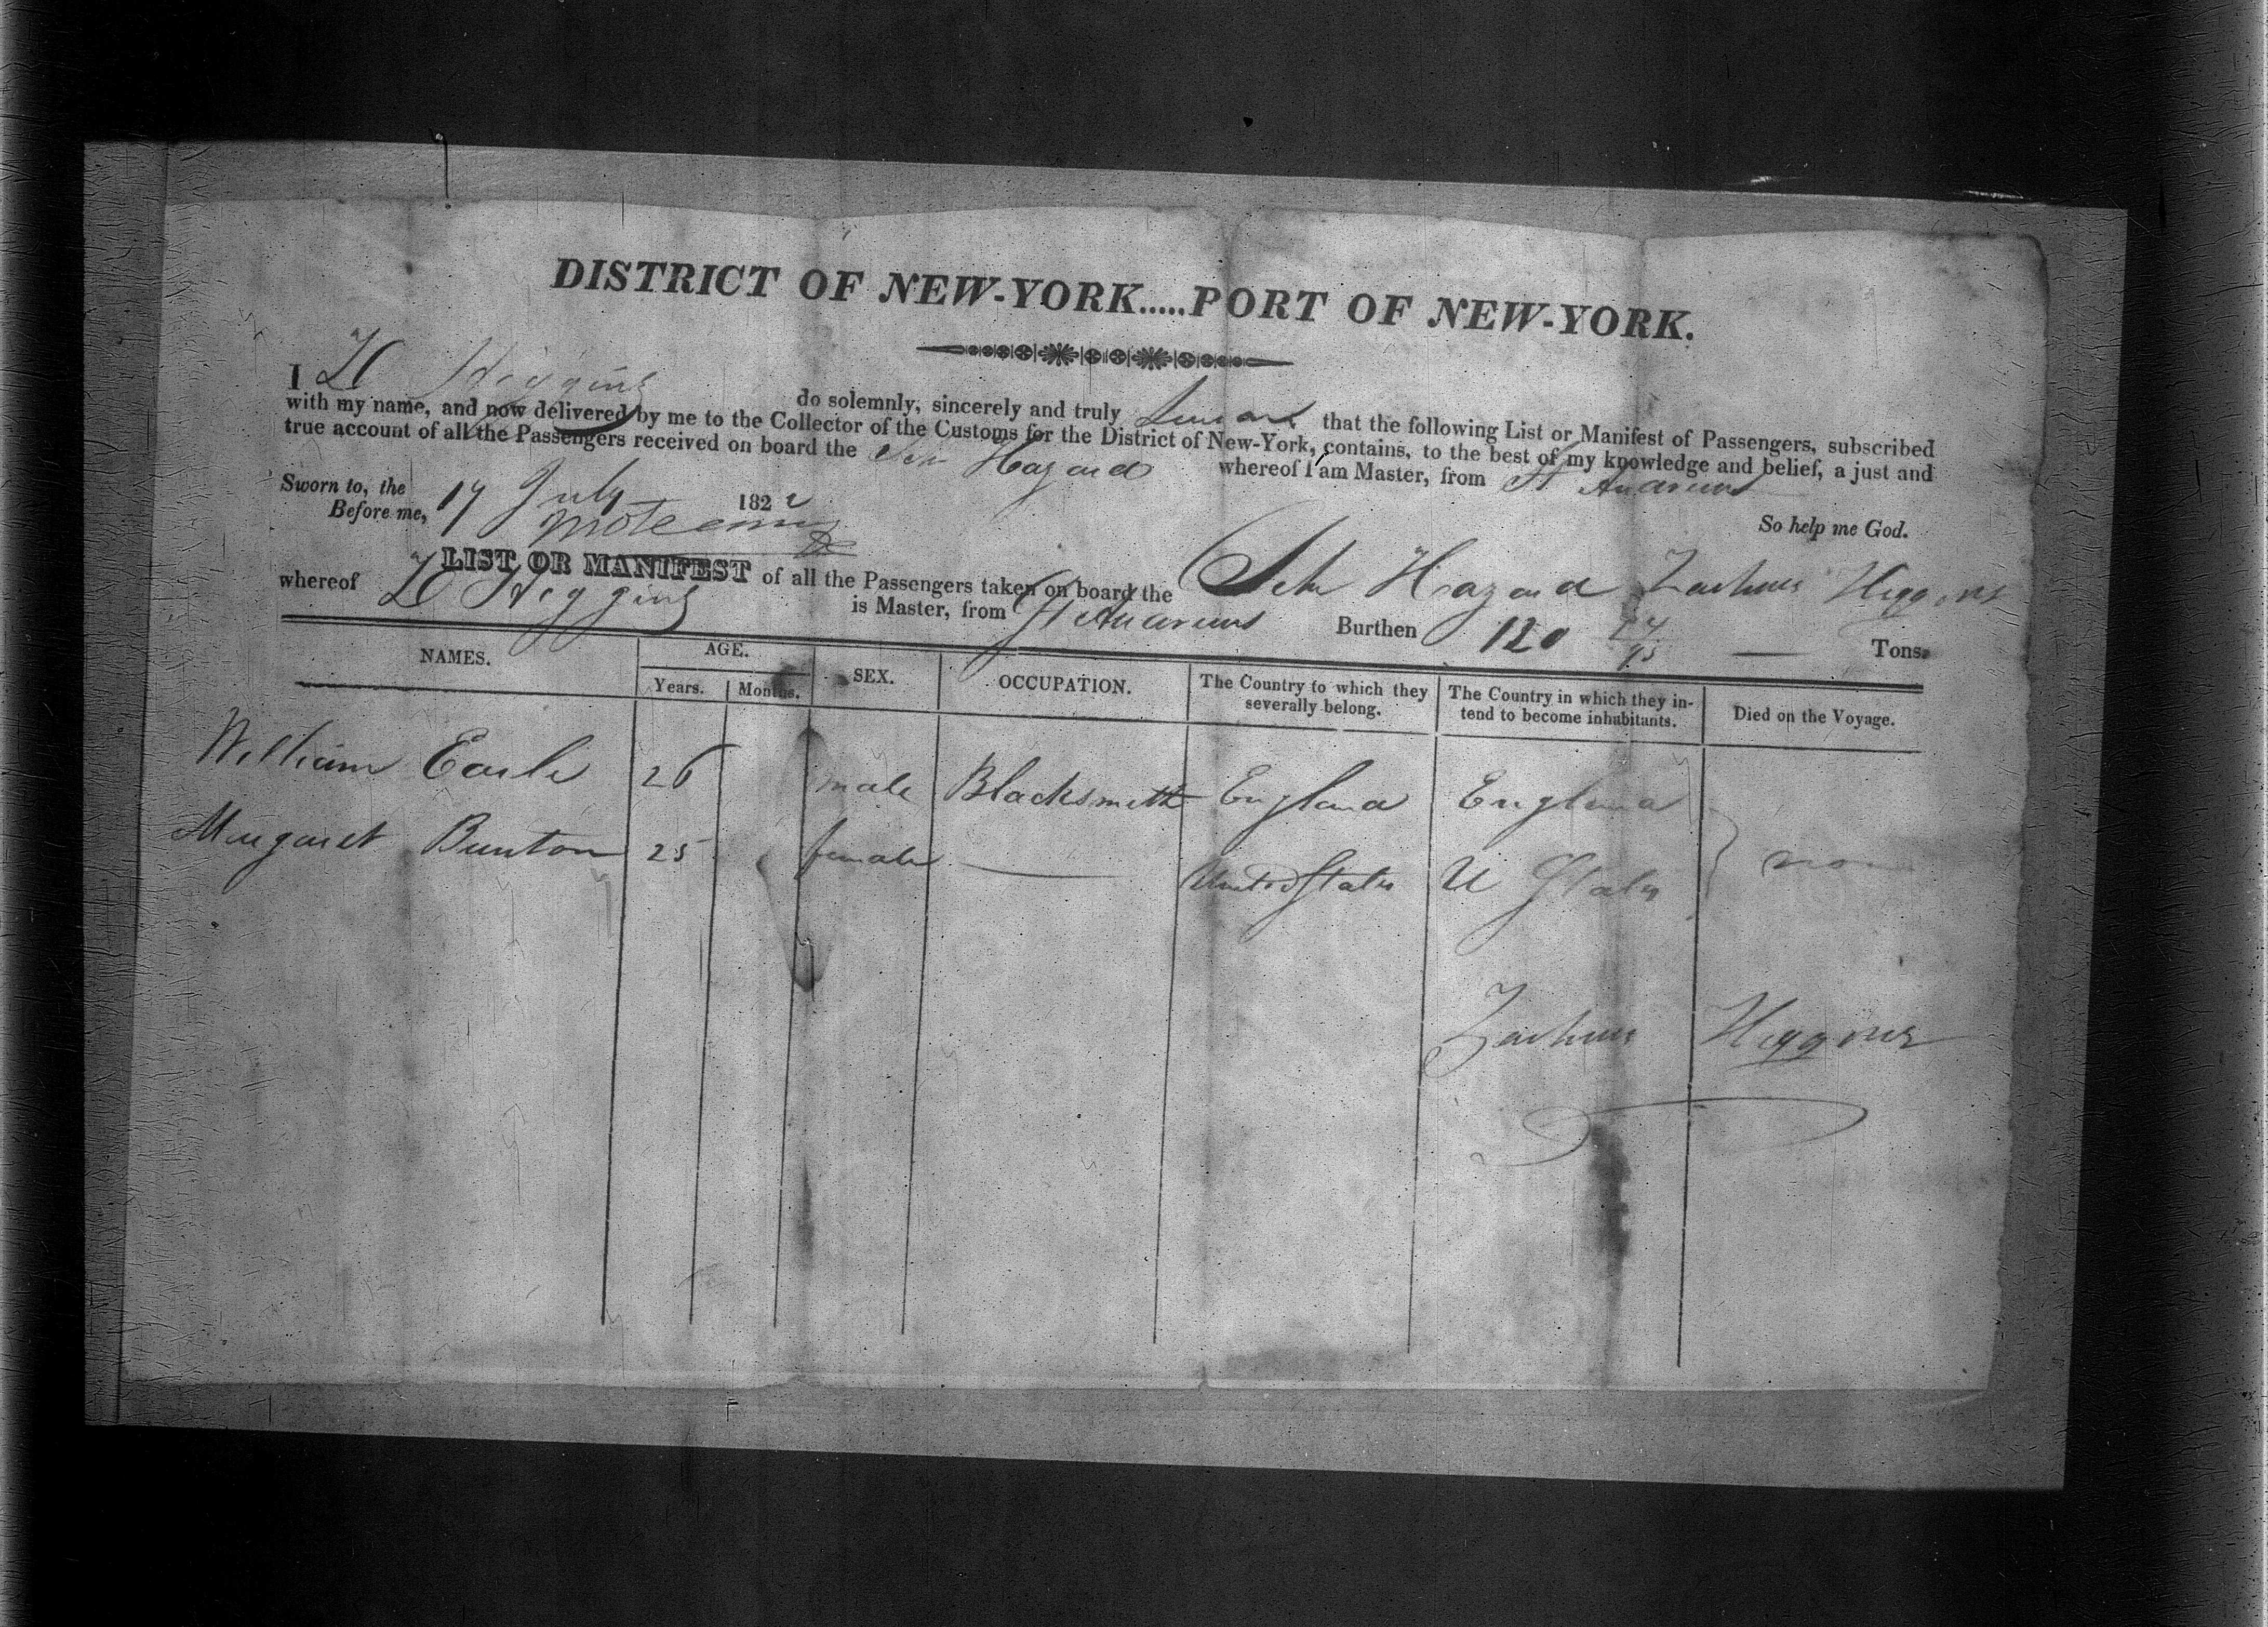 DISTRICT OF NEW-YORK.....PORT OF NEW-YORK.
I Z Higgins do solemnly, sincerely and truly Swear that the following List or Manifest of Passengers, subscribed
with my name, and now delivered by me to the Collector of the Customs for the District of New-York, contains, to the best of my knowledge and belief, a just and
true account of all the Passengers received on board the Schr Hazard whereof I am Master, from St Andrews
Sworn to, the 17 July 1822
Before me,
So help me God.
LIST OR MANIFEST of all the Passengers taken on board the Schr Hazard Higgins
whereof Z Higgins is Master, from St Andrews Burthen 120 24/95 — Tons.
NAMES. AGE. SEX. OCCUPATION. The Country to which they severally belong. The Country in which they intend to become inhabitants. Died on the Voyage.
Years. Months.
William Earle 26 male Blacksmith England England
Margaret Bunton 25 female — United States U States
Higgins